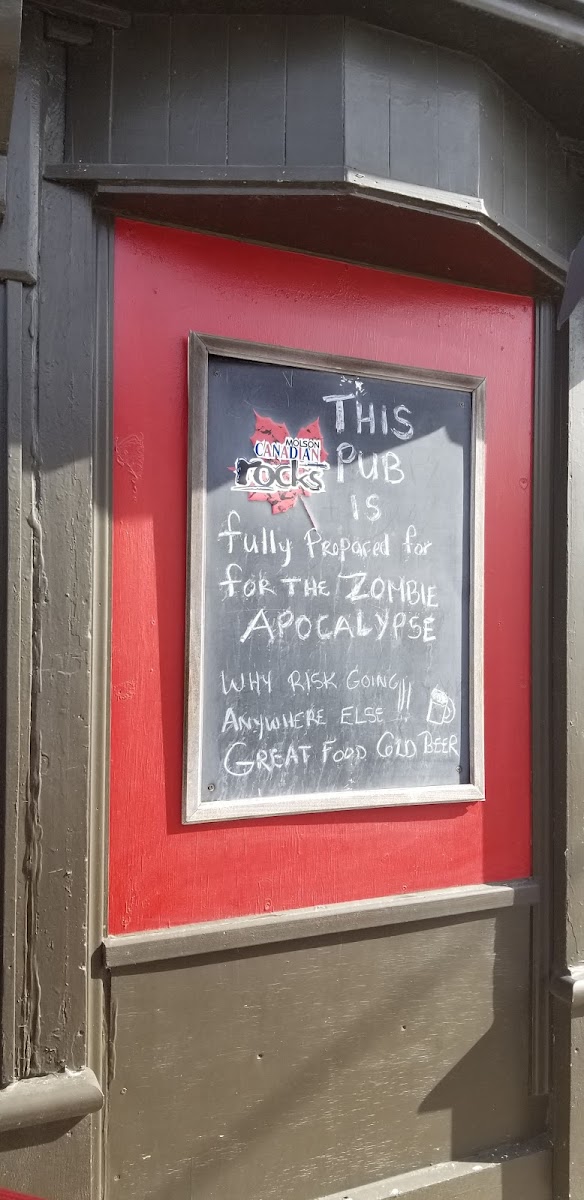 MOLSON
CANADIAN
rocks
THIS
PUB
IS
fully Prepared for
FOR THE ZOMBIE
APOCALYPSE
WHY RISK GOING
ANYWHERE ELSE !!!
GREAT FOOD COLD BEER